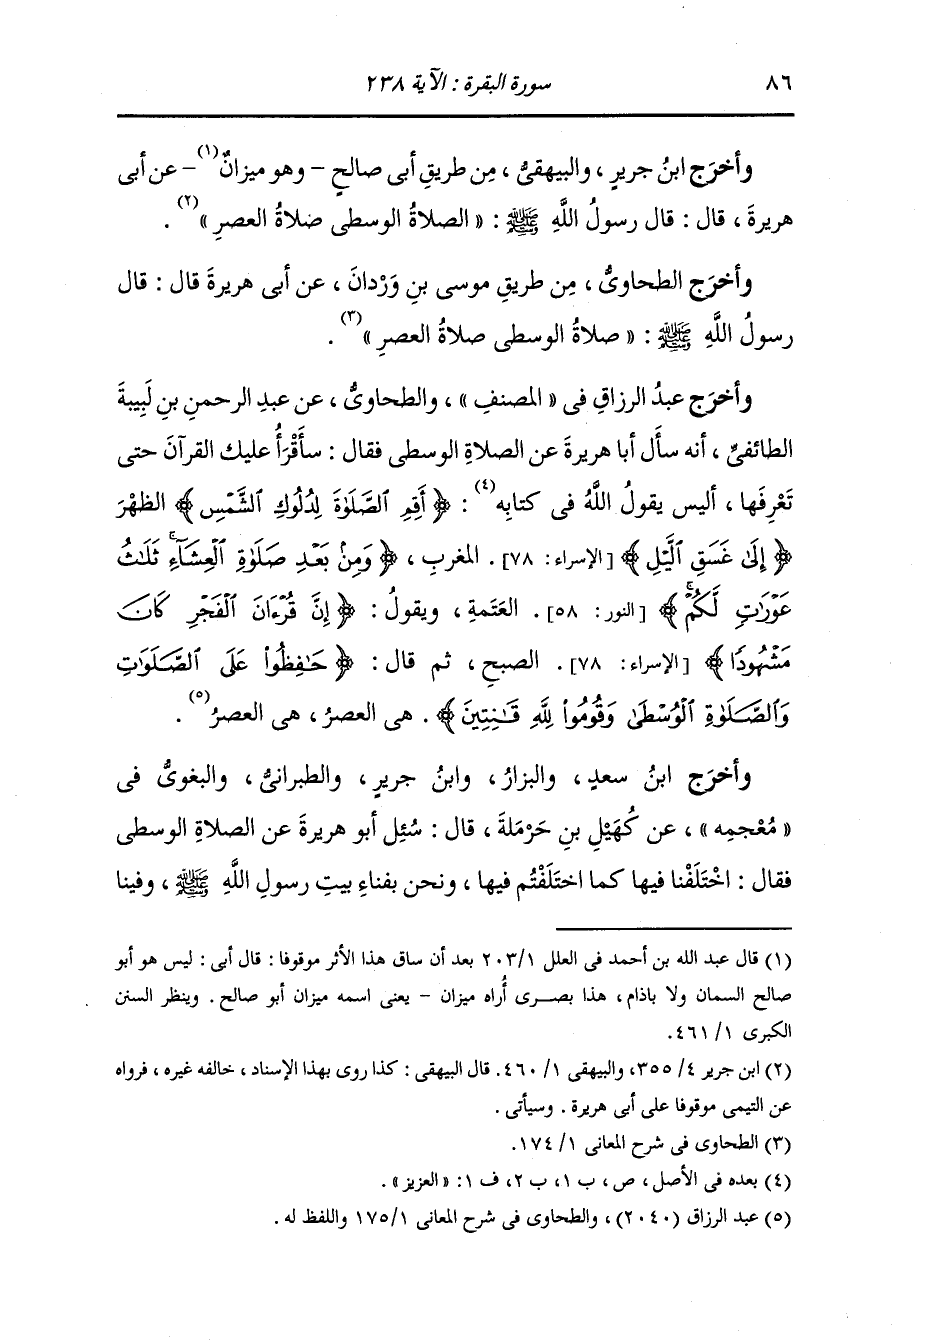 ٨٦ سورة البقرة : الآية ٢٣٨
وأخرَج ابنُ جريرٍ ، والبيهقىُّ ، مِن طريقِ أبى صالحٍ – وهو ميزانٌ(١) – عن أبى
هريرةَ ، قال : قال رسولُ اللَّهِ ﷺ : « الصلاةُ الوسطى صلاةُ العصرِ »(٢) .
وأخرَج الطحاوىُّ ، مِن طريقِ موسى بنِ وَرْدانَ ، عن أبى هريرةَ قال : قال
رسولُ اللَّهِ ﷺ : « صلاةُ الوسطى صلاةُ العصرِ »(٣) .
وأخرَج عبدُ الرزاقِ فى « المصنفِ » ، والطحاوىُّ ، عن عبدِ الرحمنِ بنِ لَبِيبةَ
الطائفىِّ ، أنه سأَل أبا هريرةَ عن الصلاةِ الوسطى فقال : سأَقْرَأُ عليك القرآنَ حتى
تَعْرِفَها ، أليس يقولُ اللَّهُ فى كتابِه(٤) : ﴿ أَقِمِ ٱلصَّلَوٰةَ لِدُلُوكِ ٱلشَّمْسِ ﴾ الظهْرَ
﴿ إِلَىٰ غَسَقِ ٱلَّيْلِ ﴾ [الإسراء: ٧٨] . المغربِ ، ﴿ وَمِنۢ بَعْدِ صَلَوٰةِ ٱلْعِشَآءِۚ ثَلَٰثُ
عَوْرَٰتٍ لَّكُمْۚ ﴾ [النور: ٥٨] . العَتَمةِ ، ويقولُ : ﴿ إِنَّ قُرْءَانَ ٱلْفَجْرِ كَانَ
مَشْهُودًا ﴾ [الإسراء: ٧٨] . الصبحِ ، ثم قال : ﴿ حَٰفِظُوا۟ عَلَى ٱلصَّلَوَٰتِ
وَٱلصَّلَوٰةِ ٱلْوُسْطَىٰ وَقُومُوا۟ لِلَّهِ قَٰنِتِينَ ﴾ . هى العصرُ ، هى العصرُ(٥) .
وأخرَج ابنُ سعدٍ ، والبزارُ ، وابنُ جريرٍ ، والطبرانىُّ ، والبغوىُّ فى
« مُعْجمِه » ، عن كُهَيْلِ بنِ حَرْملةَ ، قال : سُئِل أبو هريرةَ عن الصلاةِ الوسطى
فقال : اخْتَلَفْنا فيها كما اختَلَفْتُم فيها ، ونحن بفناءِ بيتِ رسولِ اللَّهِ ﷺ ، وفينا
(١) قال عبد الله بن أحمد فى العلل ٢٠٣/١ بعد أن ساق هذا الأثر موقوفا : قال أبى : ليس هو أبو
صالح السمان ولا باذام ، هذا بصرى أُراه ميزان – يعنى اسمه ميزان أبو صالح . وينظر السنن
الكبرى ٤٦١/١.
(٢) ابن جرير ٣٥٥/٤، والبيهقى ٤٦٠/١. قال البيهقى : كذا روى بهذا الإسناد ، خالفه غيره ، فرواه
عن التيمى موقوفا على أبى هريرة . وسيأتى .
(٣) الطحاوى فى شرح المعانى ١٧٤/١.
(٤) بعده فى الأصل ، ص ، ب ١، ب ٢، ف ١: « العزيز » .
(٥) عبد الرزاق (٢٠٤٠) ، والطحاوى فى شرح المعانى ١٧٥/١ واللفظ له .